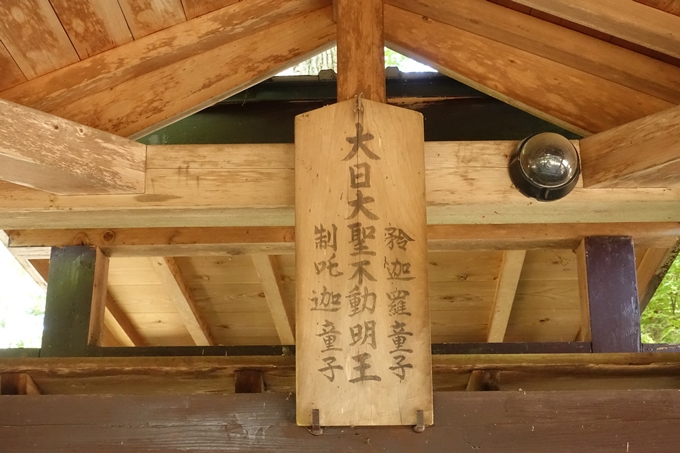 矜迦羅童子
大日大聖不動明王
制吒迦童子